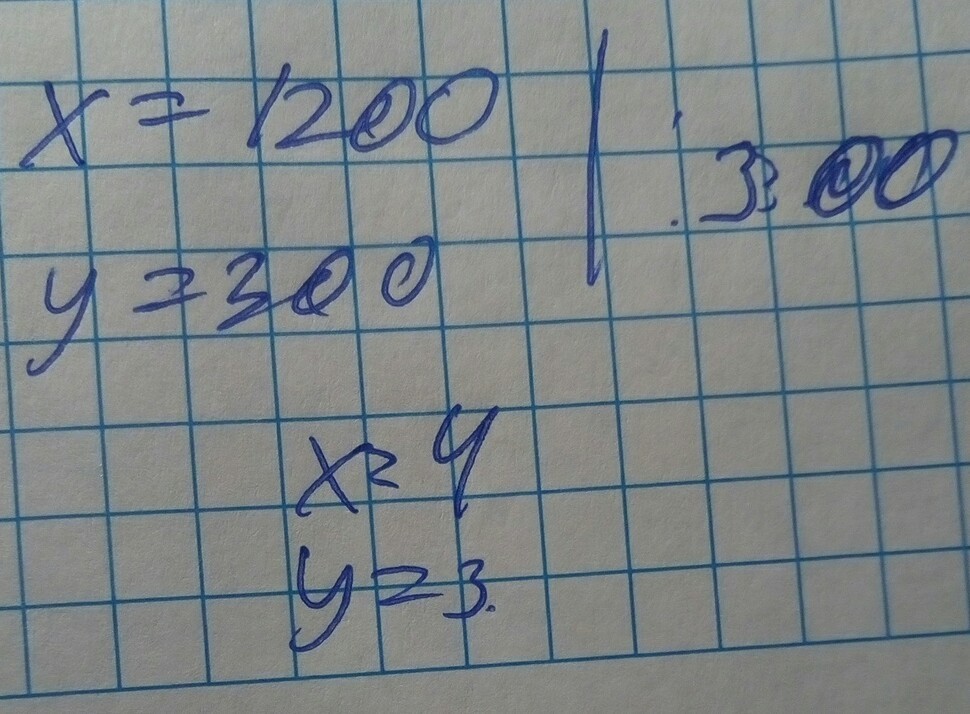 x = 1200 | : 300
y = 300
x = 4
y = 3.